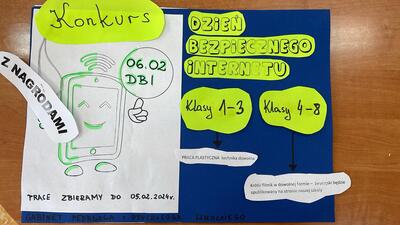 Konkurs
Z NAGRODAMI
06.02
DBI
PRACE ZBIERAMY DO 05.02.2024r.
DZIEŃ
BEZPIECZNEGO
INTERNETU
Klasy 1-3
Klasy 4-8
PRACA PLASTYCZNA technika dowolna
Krótki filmik w dowolnej formie – zwycięzki będzie
opublikowany na stronie naszej szkoły
GABINET PEDAGOGA I PSYCHOLOGA SZKOLNEGO